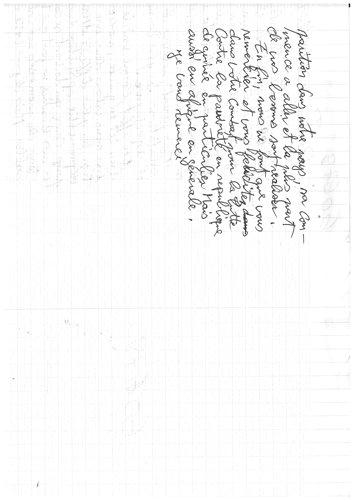 parution dans notre pays, va com-
mence a aller et la plus part
de nos besoins sont réaliser.
En fin, nous ne font que vous
remercier et vous félicitez dans
dans votre combat pour la lutte
Contre la pauvreté en republique
de guinée en particulier Mais
aussi en afrique en générale,
je vous remercie